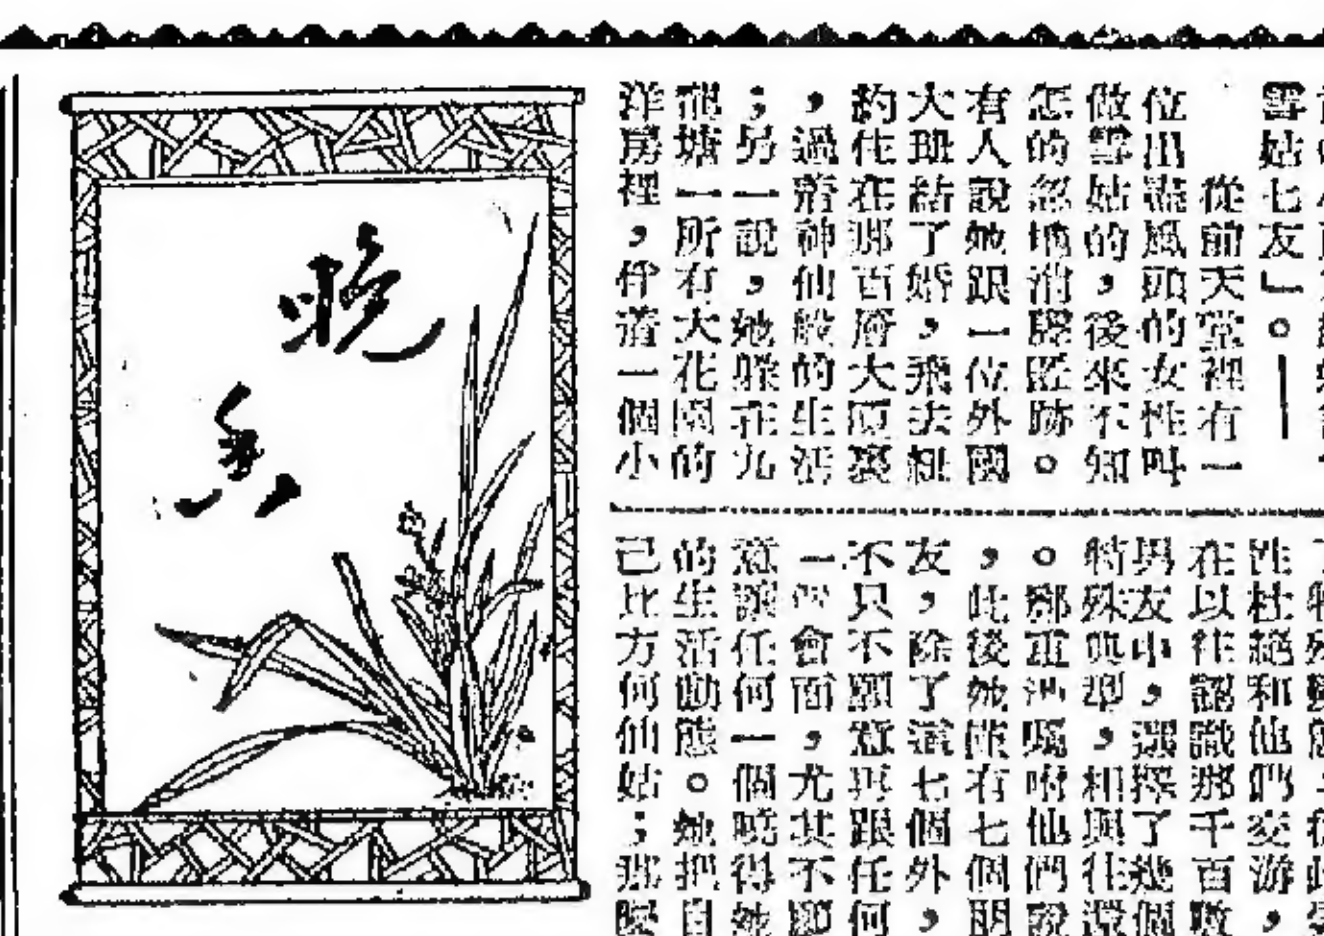 雪姑七友」。——
從前天堂裡有一
位出盡風頭的女性叫
做雪姑的，後來不知
怎的忽地消聲匿跡。
有人說她跟一位外國
大班結了婚，飛去紐
約住在那百層大廈裏
，過着神仙般的生活
；另一說，她躲在九
龍塘一所有大花園的
洋房裡，伴着一個小
性杜絕和他們交游，
在以往認識那千百數
男友中，選擇了幾個
特殊典型，相與往還
。鄭重地囑咐他們說
，此後她僅有七個朋
友，除了這七個外，
不只不願意再跟任何
一個會面，尤其不願
意讓任何一個曉得她
的生活動態。她把自
己比方何仙姑；那麼
晚香